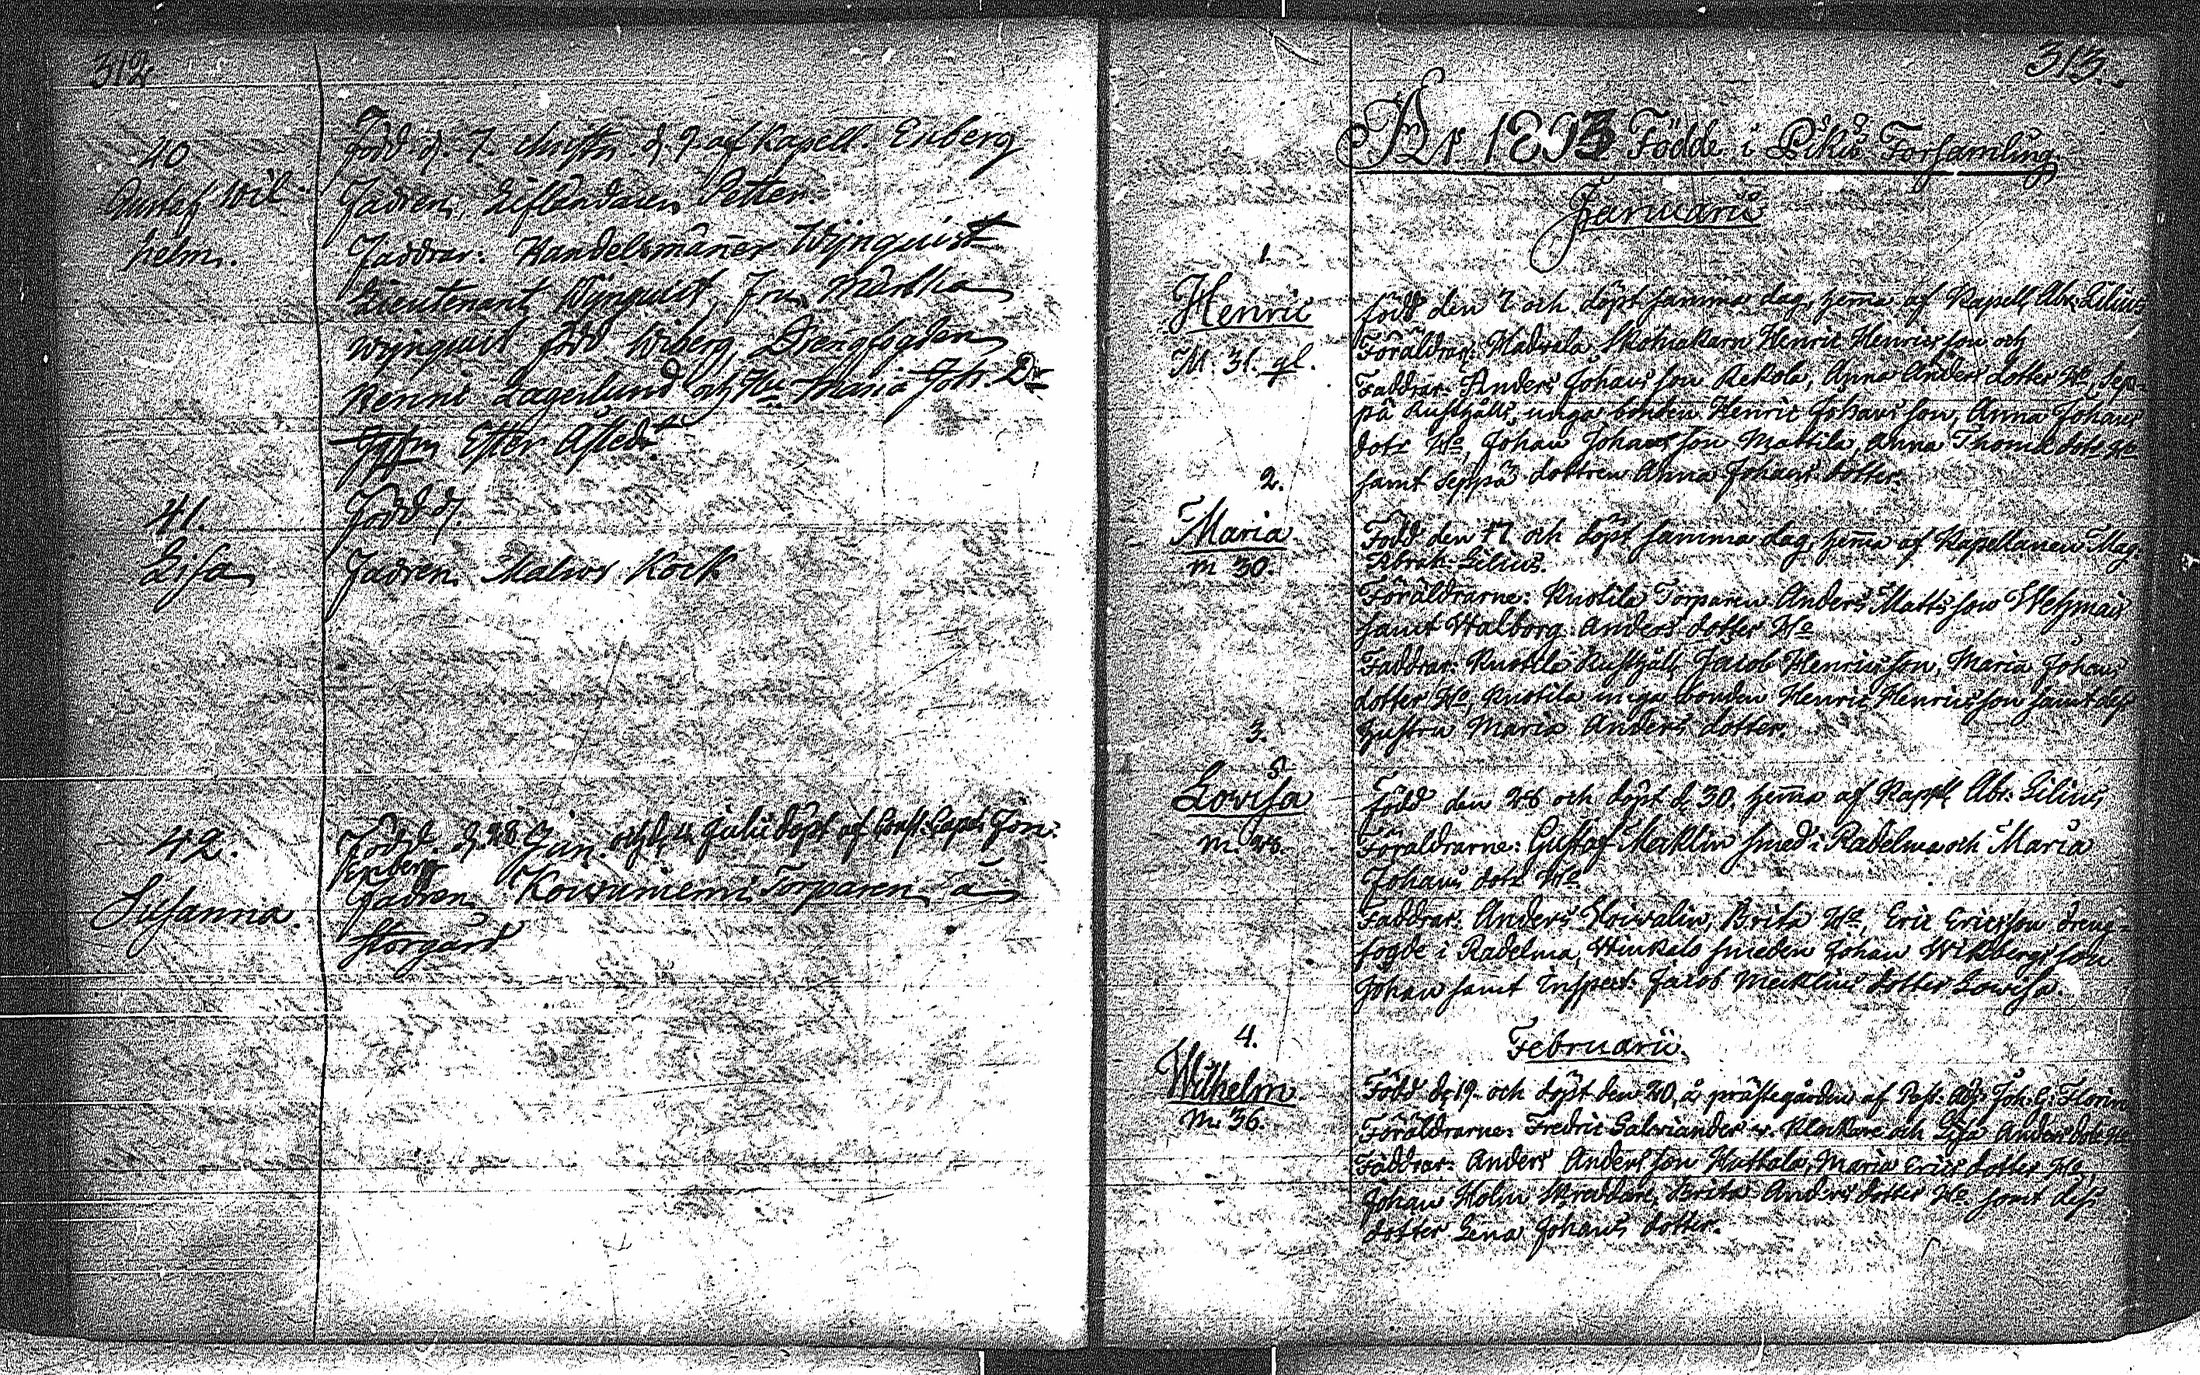 312
40
Gustaf Wil-
helm.
Född d. 7. christn d. 9 af Kapell. Enberg
Fadren,  Petter
Faddrar: Handelsmäner Wijnquist
Lieutenant Wijnquist, Fru Martha
Wijnquist född Wiberg, Drengfogden
Henric Lagerlund och Hu Maria Joh. Dr
Efter Afled.
41.
Lisa
Född d.
Fadren. Malms Kock
42.
Susanna.
Född. d. 28 Jun. och d. 4 Julii döpt af Const. Capel. Jon.
Enberg
Fadren Koivuniemi Torparen å
Storgård
313.
År 1803 Födde i Pikis Församling.
Januarii
1.
Henric
M. 31. gl.
född den 7 och döpt samma dag, hema af Kapell. Abr. Lilius
Föräldrar: Skomakarn Henric Henricsson och
Faddrar: Anders Johansson Rekola, Anna Anders dotter Ho, Sep-
på Rusthålls unga bonden Henric Johansson, Anna Johans
dotr Ho, Johan Johansson Mattila, Anna Thomae dotr Ho
samt Seppä dottren Anna Johans dotter.
2.
Maria
m 30.
Född den 17 och döpt samma dag hema af Kapellanen Mag.
Abrah: Lilius.
Föräldrarne: Knotila Torparen Anders Mattsson Wehmais
samt Walborg Anders dotter Ho
Faddrar: Knotila Rusthåll. Jacob Henricsson, Maria Johans
dotter Ho, Knotila unga bonden Henric Henricsson samt dess
hustru Maria Anders dotter.
3.
Lovisa
m 28.
Född den 28 och döpt d. 30. hema af Kapell. Abr. Lilius
Föräldrarne: Gustaf Mecklin smed i Radelma och Maria
Johans dotr Ho.
Faddrar: Anders Hoivalin, Brita Ho, Eric Ericsson dreng-
fogde i Radelma, Winkels smeden Johan Wikbergs son
Johan samt Inspect: Jacob Mecklins dotter Lovisa.
Februarii.
4.
Wilhelm
m. 36.
Född d. 19. och döpt den 20, å prästegården af Past: Adj: Joh. G: Florin
Föräldrarne: Fredric Salviander v. Klockare och Lisa Anders dotr Ho
Faddrar: Anders Andersson Huttala, Maria Erics dotter Ho,
Johan Holm skreddare, Brita Anders dotter Ho samt dess
dotter Lena Johans dotter.